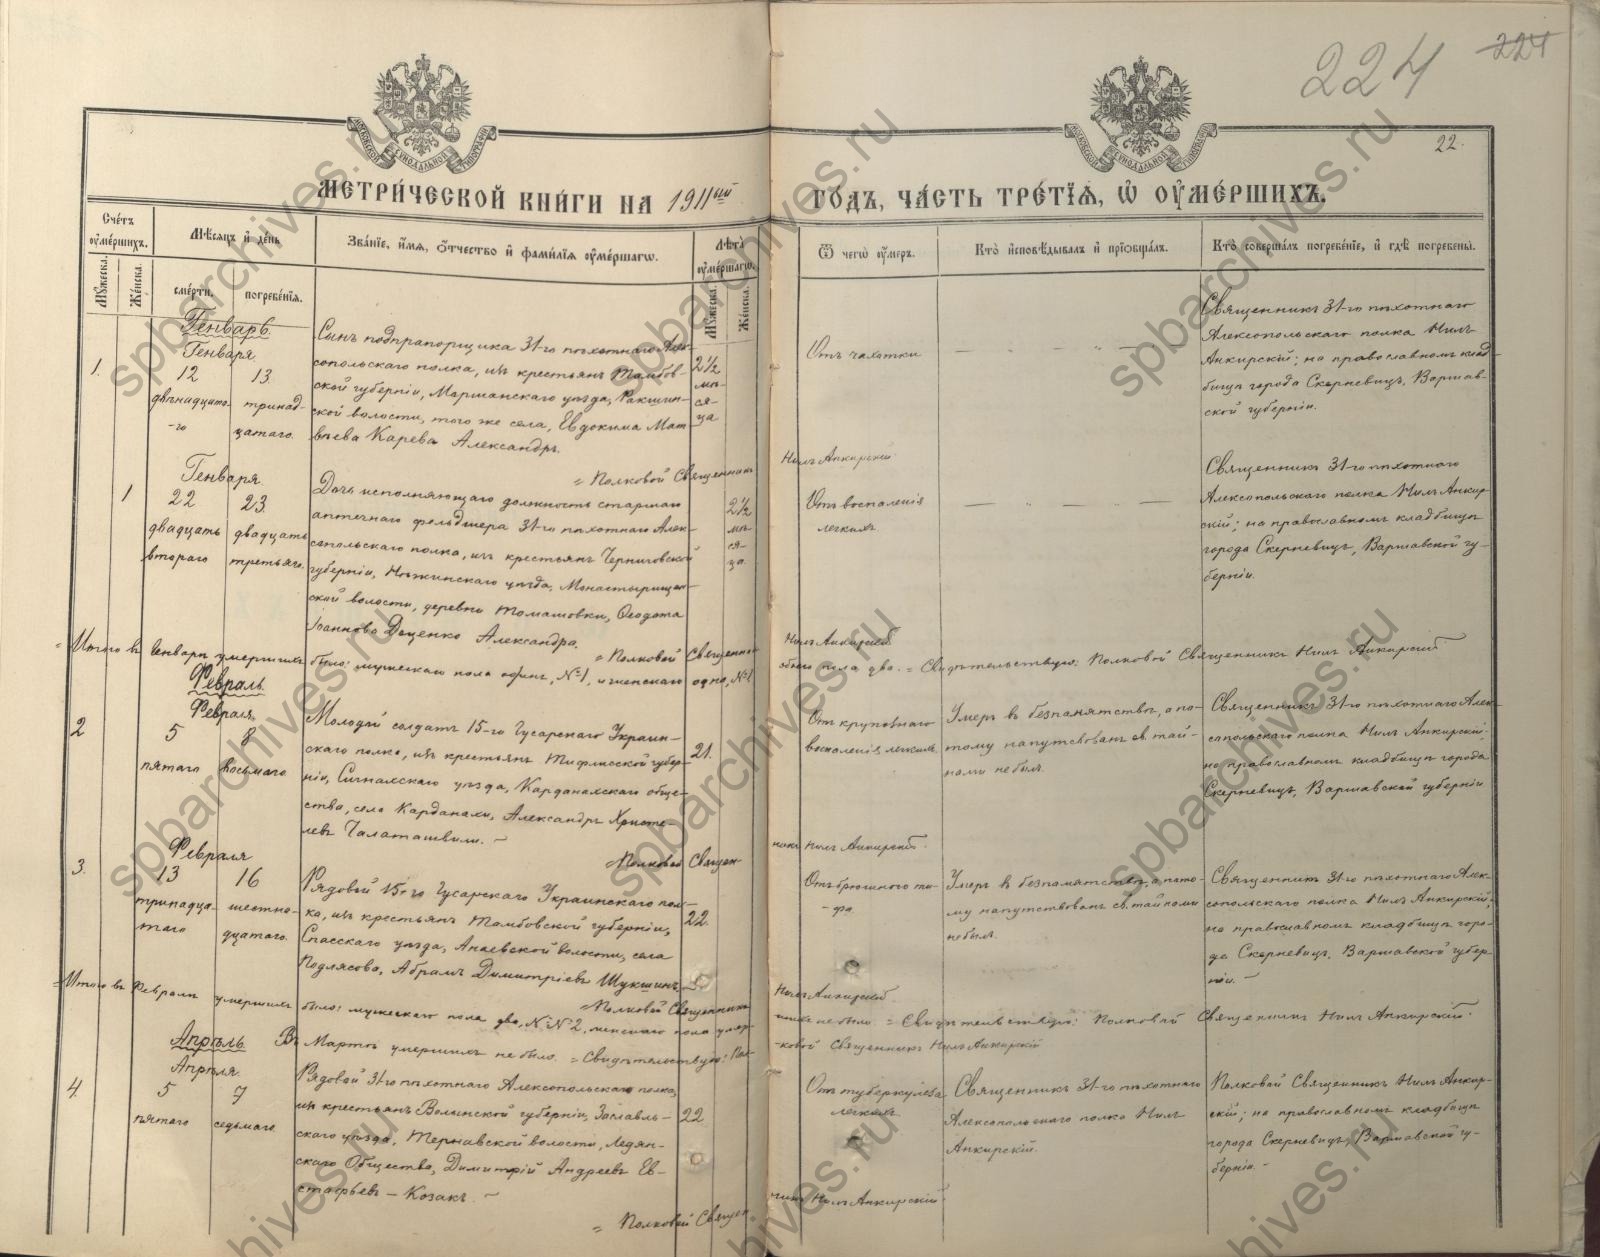 224 224
22.
МОСКОВСКОЙ СѴНОДАЛЬНОЙ ТИПОГРАФІИ
МОСКОВСКОЙ СѴНОДАЛЬНОЙ ТИПОГРАФІИ
МЕТРИ́ЧЕСКОЙ КНИ́ГИ НА 1911ый ГО́ДЪ, ЧА́СТЬ ТРЕ́ТІѦ, Ѡ ОУМЕ́РШИХЪ.
Сче́тъ оумершихъ.
Мужеска.
Же́нска.
Мѣсяцъ и де́нь
сме́рти.
погребе́нія.
Зва́ніе, и́мя, ѻтчество и фами́лія оуме́ршагѡ.
Лѣта оуме́ршагѡ.
Мужеска.
Же́нска.
Ѿ чегѡ оу́меръ.
Кто̀ исповѣ́дывалъ и пріобща́лъ.
Кто̀ соверша́лъ погребе́ніе, и гдѣ̀ погребены̀.
Генварь.
Генваря.
1.
12 13
двѣнадцата-го
тринадцатаго.
Сынъ подпрапорщика 31-го пѣхотнаго Алек-
сопольскаго полка, изъ крестьянъ Тамбов-
ской губерніи, Моршанскаго уѣзда, Ракшин-
ской волости, того же села, Евдокима Мат-
вѣева Карева Александръ.
2½ мѣ-
ся-
ца
Отъ чахотки
Священникъ 31-го пѣхотнаго
Алексопольскаго полка Нилъ
Анкирскій; на православномъ клад-
бищѣ города Скерневицъ, Варшав-
ской губерніи.
= Полковой Священникъ Нилъ Анкирскій
Генваря.
1
22 23.
двадцать втораго
двадцать третьяго.
Дочь исполняющаго должность старшаго
аптечнаго фельдшера 31-го пѣхотнаго Алек-
сопольскаго полка, изъ крестьянъ Черниговской
губерніи, Нѣжинскаго уѣзда, Монастырищен-
ской волости, деревни Томашовки, Ѳеодота
Іоаннова Доценко Александра.
2½
мѣ-
ся-
ца.
Отъ воспаленія
легкихъ.
Священникъ 31-го пѣхотнаго
Алексопольскаго полка Нилъ Анкир-
скій; на православномъ кладбищѣ
города Скерневицъ, Варшавской гу-
берніи.
= Полковой Священникъ Нилъ Анкирскій
= Итого въ Генварѣ умершихъ было: мужескаго пола одинъ, №1, и женскаго одна, №1 обоего пола два. = Свидѣтельствую: Полковой Священникъ Нилъ Анкирскій
Февраль.
Февраля.
2
5 8
пятаго восьмаго.
Молодой солдатъ 15-го Гусарскаго Украин-
скаго полка, изъ крестьянъ Тифлисской губер-
ніи, Сигнахскаго уѣзда, Карданахскаго обще-
ства, села Карданахи, Александръ Христе-
левъ Галаташвили. ~
21.
Отъ крупознаго
воспаленія легкихъ.
Умеръ въ безпамятствѣ, а по-
тому напутствованъ св. тай-
нами не былъ.
Священникъ 31-го пѣхотнаго Алек-
сопольскаго полка Нилъ Анкирскій;
на православномъ кладбищѣ города
Скерневицъ, Варшавской губерніи
= Полковой Священникъ Нилъ Анкирскій.
Февраля
3.
13 16
тринадца-
таго
шестна-
дцатаго.
Рядовой 15-го Гусарскаго Украинскаго пол-
ка, изъ крестьянъ Тамбовской губерніи,
Спасскаго уѣзда, Анаевской волости, села
Подлясова, Абрамъ Димитріевъ Шукшинъ. ~
22.
Отъ брюшного ти-
-фа.
Умеръ въ безпамятствѣ, а пото-
му напутствованъ св. тайнами
не былъ.
Священникъ 31-го пѣхотнаго Алек-
сопольскаго полка Нилъ Анкирскій;
на православномъ кладбищѣ горо-
да Скерневицъ, Варшавской губер-
ніи. ~
= Полковой Священникъ Нилъ Анкирскій
= Итого въ Февралѣ умершихъ было: мужескаго пола два, №№ 2, женскаго пола умер-
шихъ не было. = Свидѣтельствую: Полковой Священникъ Нилъ Анкирскій.
Въ Мартѣ умершихъ не было. = Свидѣтельствую: Пол-
ковой Священникъ Нилъ Анкирскій
Апрѣль.
Апрѣля.
4.
5 7
пятаго седьмаго
Рядовой 31-го пѣхотнаго Алексопольскаго полка,
изъ крестьянъ Волынской губерніи, Заславль-
скаго уѣзда, Тернавской волости, Ледян-
скаго Общества, Димитрій Андреевъ Ев-
стафьевъ – Козакъ. ~
22
Отъ туберкулеза
легкихъ
Священникъ 31-го пѣхотнаго
Алексопольскаго полка Нилъ
Анкирскій.
Полковой Священникъ Нилъ Анкир-
скій; на православномъ кладбищѣ
города Скерневицъ, Варшавской гу-
берніи. ~
= Полковой Священникъ Нилъ Анкирскій
spbarchives.ru